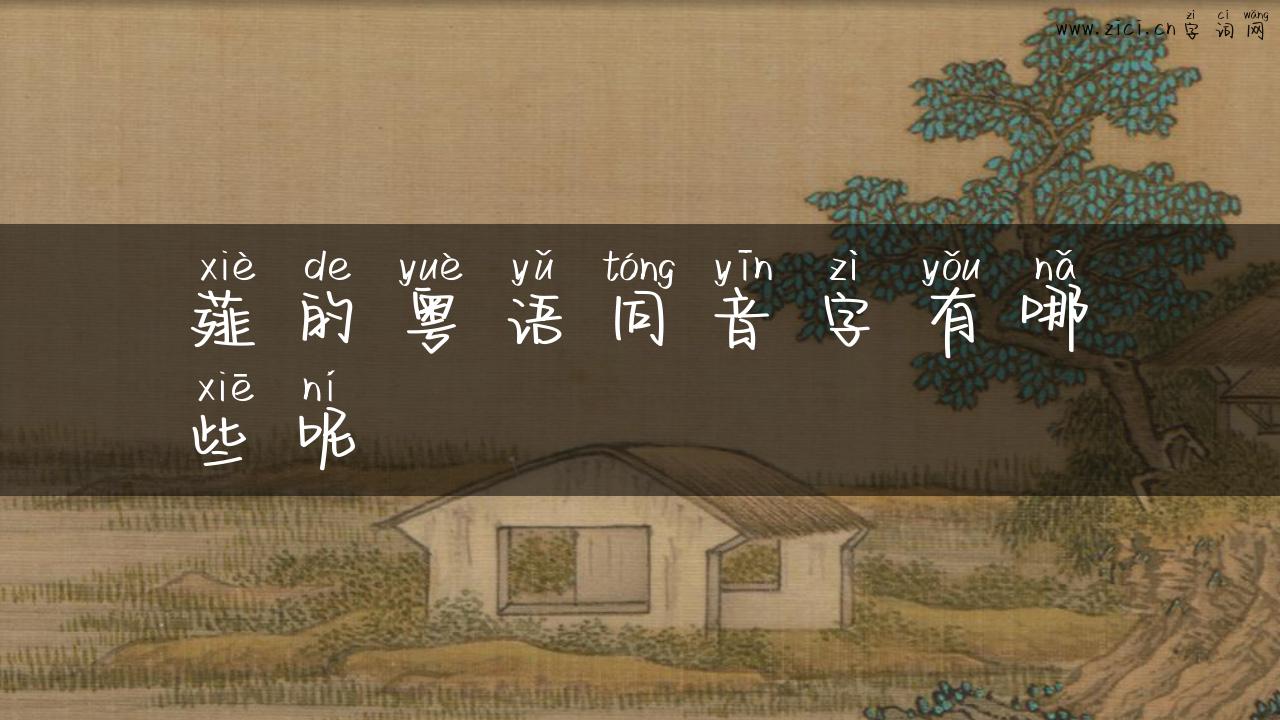 zì cí wǎng
www.zici.cn 字词网
xiè de yuè yǔ tóng yīn zì yǒu nǎ
薤的粤语同音字有哪
xiē ní
些呢